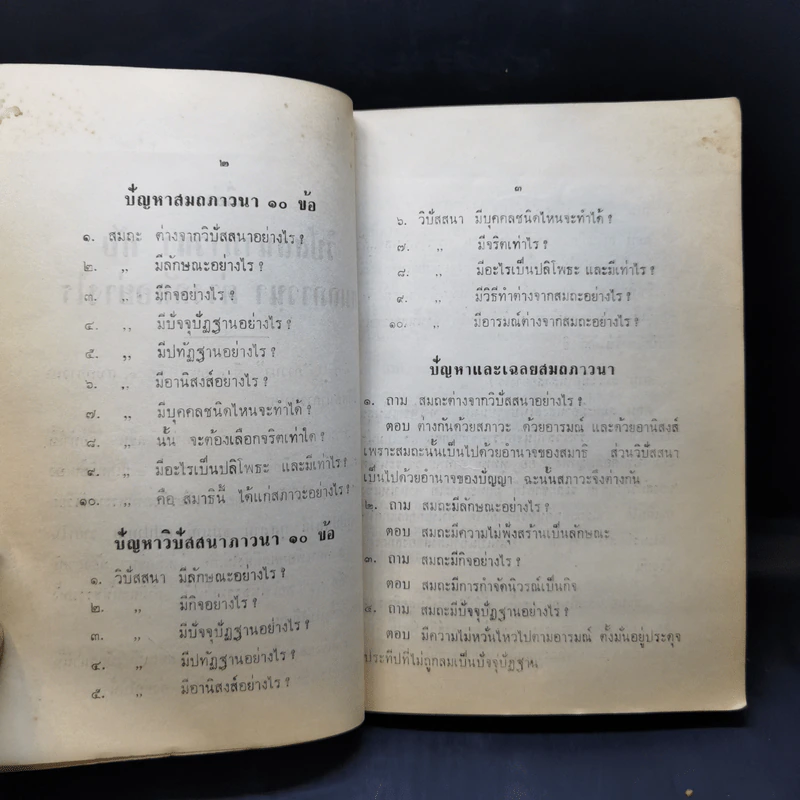 ๒
ปัญหาสมถภาวนา ๑๐ ข้อ
๑. สมถะ ต่างจากวิปัสสนาอย่างไร ?
๒. ,, มีลักษณะอย่างไร ?
๓. ,, มีกิจอย่างไร ?
๔. ,, มีปัจจุปัฏฐานอย่างไร ?
๕. ,, มีปทัฏฐานอย่างไร ?
๖. ,, มีอานิสงส์อย่างไร ?
๗. ,, มีบุคคลชนิดไหนจะทำได้ ?
๘. ,, นั้น จะต้องเลือกจริตเท่าใด ?
๙. ,, มีอะไรเป็นปลิโพธะ และมีเท่าไร ?
๑๐. ,, คือ สมาธินี้ ได้แก่สภาวะอย่างไร ?
ปัญหาวิปัสสนาภาวนา ๑๐ ข้อ
๑. วิปัสสนา มีลักษณะอย่างไร ?
๒. ,, มีกิจอย่างไร ?
๓. ,, มีปัจจุปัฏฐานอย่างไร ?
๔. ,, มีปทัฏฐานอย่างไร ?
๕. ,, มีอานิสงส์อย่างไร ?
๓
๖. วิปัสสนา มีบุคคลชนิดไหนจะทำได้ ?
๗. ,, มีจริตเท่าไร ?
๘. ,, มีอะไรเป็นปลิโพธะ และมีเท่าไร ?
๙. ,, มีวิธีทำต่างจากสมถะอย่างไร ?
๑๐. ,, มีอารมณ์ต่างจากสมถะอย่างไร ?
ปัญหาและเฉลยสมถภาวนา
๑. ถาม สมถะต่างจากวิปัสสนาอย่างไร ?
ตอบ ต่างกันด้วยสภาวะ ด้วยอารมณ์ และด้วยอานิสงส์
เพราะสมถะนั้นเป็นไปด้วยอำนาจของสมาธิ ส่วนวิปัสสนา
เป็นไปด้วยอำนาจของปัญญา ฉะนั้นสภาวะจึงต่างกัน
๒. ถาม สมถะมีลักษณะอย่างไร ?
ตอบ สมถะมีความไม่ฟุ้งสร้านเป็นลักษณะ
๓. ถาม สมถะมีกิจอย่างไร ?
ตอบ สมถะมีการกำจัดนิวรณ์เป็นกิจ
๔. ถาม สมถะมีปัจจุปัฏฐานอย่างไร ?
ตอบ มีความไม่หวั่นไหวไปตามอารมณ์ ตั้งมั่นอยู่ประดุจ
ประทีปที่ไม่ถูกลมเป็นปัจจุปัฏฐาน